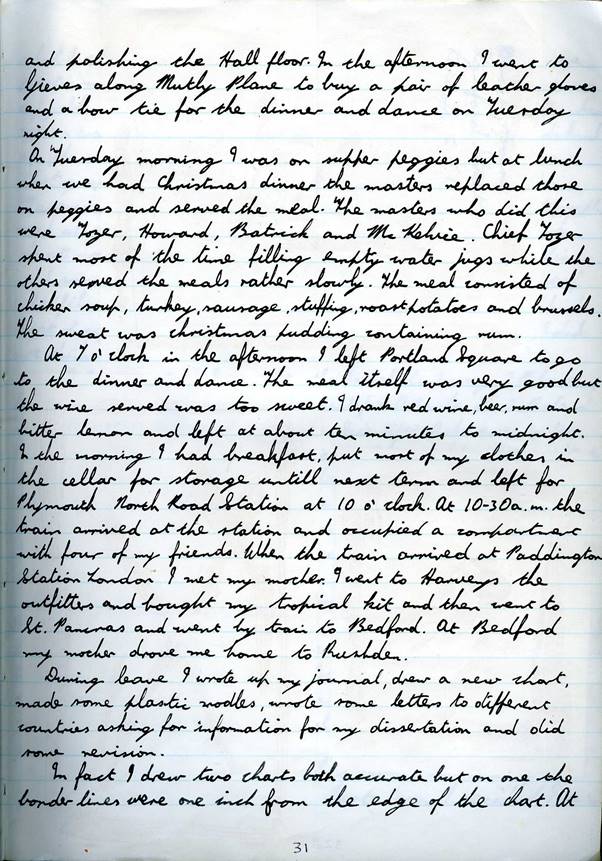 and polishing the Hall floor. In the afternoon I went to
Gieves along Mutly Plane to buy a pair of leather gloves
and a bow tie for the dinner and dance on Tuesday
night.
On Tuesday morning I was on supper peggies but at lunch
when we had Christmas dinner the masters replaced those
on peggies and served the meal. The masters who did this
were Tozer, Howard, Batrick and Mc Kelvie. Chief Tozer
spent most of the time filling empty water jugs while the
others served the meals rather slowly. The meal consisted of
chicken soup, turkey, sausage, stuffing, roast potatoes and brussels.
The sweat was christmas pudding containing rum.
At 7 o'clock in the afternoon I left Portland Square to go
to the dinner and dance. The meal itself was very good but
the wine served was too sweet. I drank red wine, beer, rum and
bitter lemon and left at about ten minutes to midnight.
In the morning I had breakfast, put most of my clothes in
the cellar for storage untill next term and left for
Plymouth North Road Station at 10 o'clock. At 10-30a.m. the
train arrived at the station and occupied a compartment
with four of my friends. When the train arrived at Paddington
Station London I met my mother. I went to Harveys the
outfitters and bought my tropical kit and then went to
St. Pancras and went by train to Bedford. At Bedford
my mother drove me home to Rushden.
During leave I wrote up my journal, drew a new chart,
made some plastic modles, wrote some letters to different
countries asking for information for my dissertation and did
some revision.
In fact I drew two charts both accurate but on one the
border lines were one inch from the edge of the chart. At
31